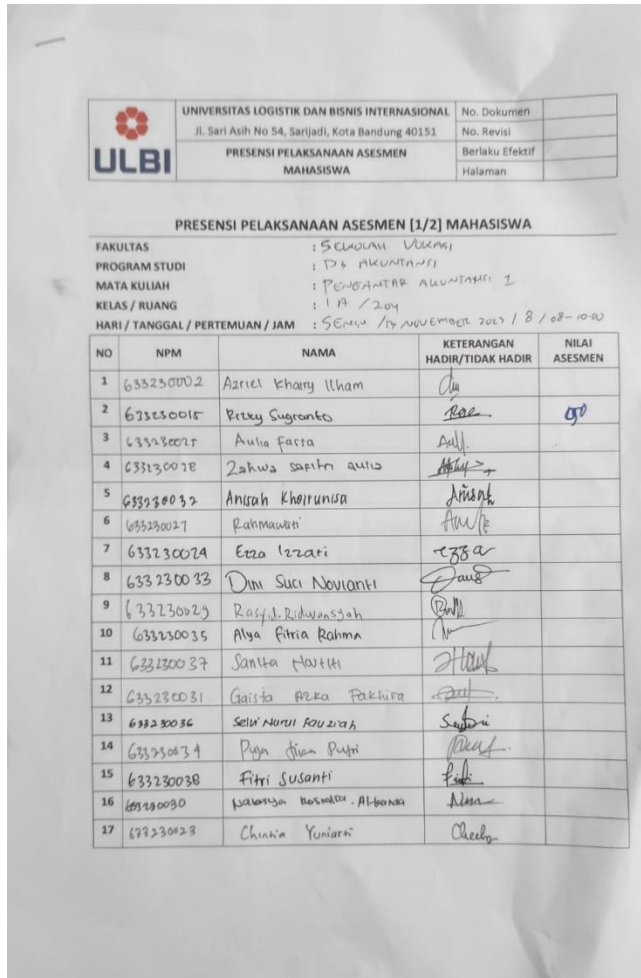 ULBI
UNIVERSITAS LOGISTIK DAN BISNIS INTERNASIONAL No. Dokumen
Jl. Sari Asih No 54, Sarijadi, Kota Bandung 40151 No. Revisi
PRESENSI PELAKSANAAN ASESMEN Berlaku Efektif
MAHASISWA Halaman
PRESENSI PELAKSANAAN ASESMEN [1/2] MAHASISWA
FAKULTAS : SEKOLAH VOKASI
PROGRAM STUDI : D3 AKUNTANSI
MATA KULIAH : PENGANTAR AKUNTANSI 1
KELAS / RUANG : 1A / 204
HARI / TANGGAL / PERTEMUAN / JAM : SENIN / NOVEMBER 2023 / 8 / 08-10.00
NO NPM NAMA KETERANGAN NILAI
HADIR/TIDAK HADIR ASESMEN
1 633230002 Azriel Khairy Ilham
2 633230015 Rizky Sugranto
3 Aulia
4 633230028 Zahwa safitri aulia
5 633230032 Anisah Khoirunisa Anisah
6 633230027 Rahmawati
7 633230024 Ezza Izzati ezza
8 633230033 Dini Suci Novianti
9 633230029 Rasyid Ridwansyah
10 633230035 Alya Fitria Rahma
11 633230037 Sanita
12 633230031 Gaista Azka Fakhira
13 633230036 Selvi Nurul Fauziah
14 633230034 Putri
15 633230038 Fitri Susanti Fitri
16 633230030
17 633230023 Chintia Yuniarti